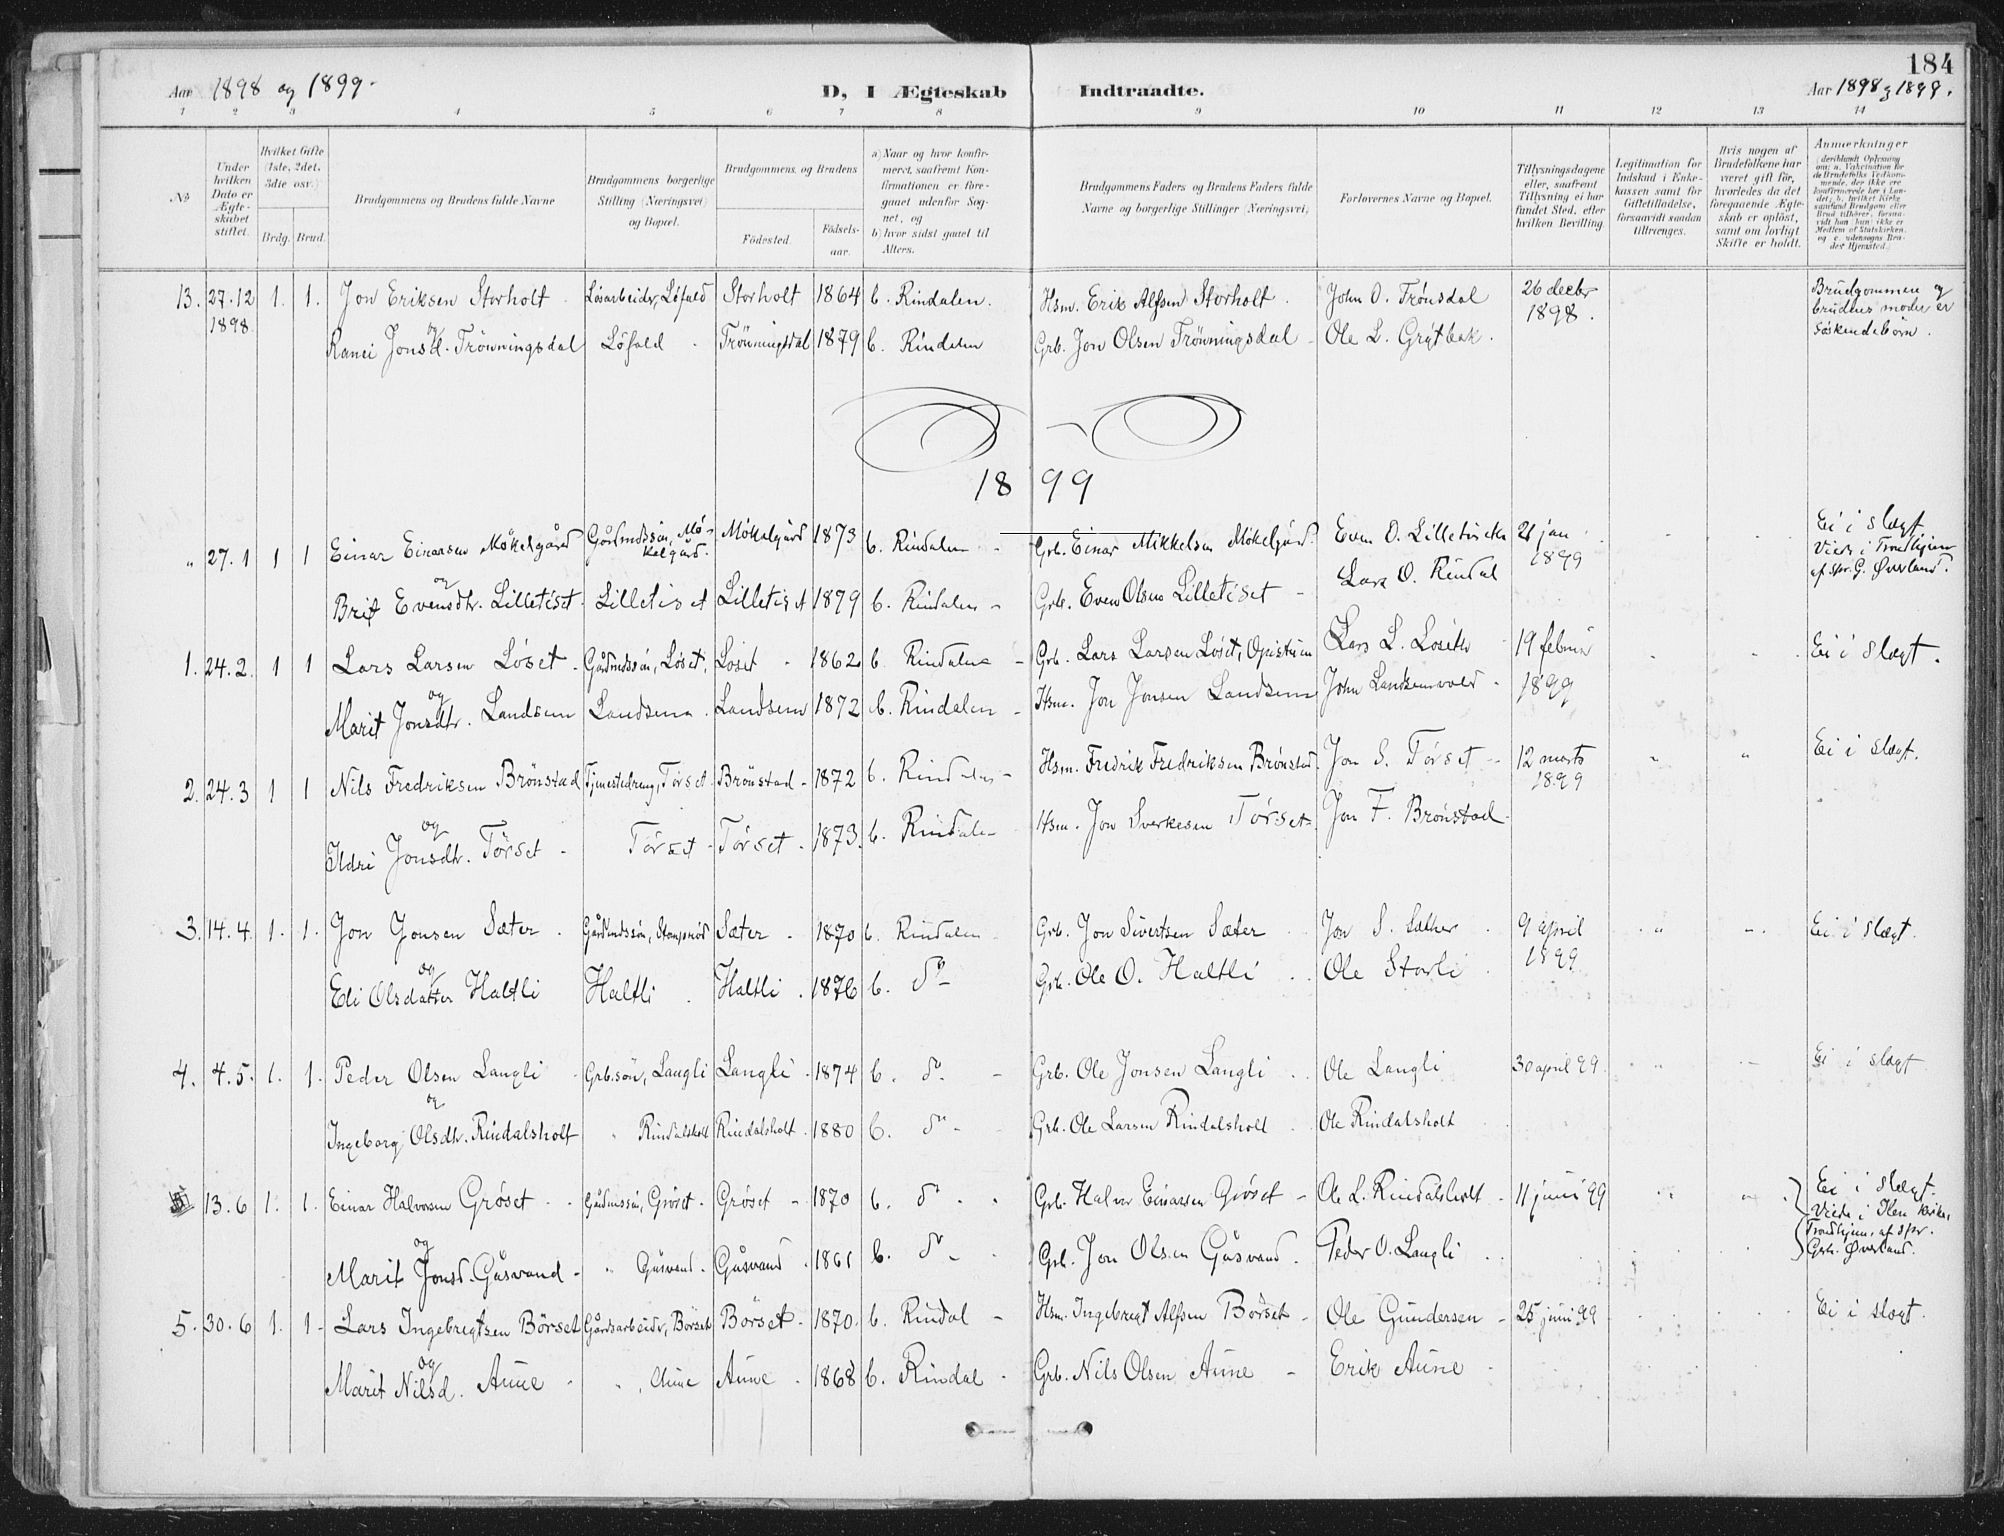 184
Aar 1898 og 1899.
D, I Ægteskab Indtraadte.
Aar 1898 og 1899.
1 2 3 4 5 6 7 8 9 10 11 12 13 14
No
Under hvilken Dato er Ægteskabet stiftet.
Hvilket Gifte (1ste, 2det, 3die osv.)
Brdg. Brud.
Brudgommens og Brudens fulde Navne
Brudgommens borgerlige Stilling (Næringsvei) og Bopæl.
Brudgommens og Brudens
Fødested. Fødselsaar.
a) Naar og hvor konfirmeret, saafremt Konfirmationen er foregaaet udenfor Sognet, og
b) hvor sidst gaaet til Alters.
Brudgommens Faders og Brudens Faders fulde Navne og borgerlige Stillinger (Næringsvei)
Forlovernes Navne og Bopæl.
Tillysningsdagene eller, saafremt Tillysning ei har fundet Sted, efter hvilken Bevilling.
Legitimation for Indskud i Enkekassen samt for Giftetilladelse, forsaavidt saadan tiltrænges.
Hvis nogen af Brudefolkene har været gift før, hvorledes da det foregaaende Ægteskab er opløst, samt om lovligt Skifte er holdt.
Anmærkninger
13. 27.12 1898 1. 1. Jon Eriksen Storholt Løsarbeider, Løfald Storholt 1864 b. Rindalen. Hsm. Erik Alfsen Storholt John O. Trønsdal 26 decbr 1898. Brudgommen og brudens moder er søskendebørn.
og
Ranei Jonsd. Trønningsdal Løfald Trønningsdal 1879 b. Rindalen Grb. Jon Olsen Trønningsdal Ole L. Grytbak.
1899
" 27.1 1 1 Einar Einarsen Møkelgård Gårdmdssøn, Møkelgård. Møkelgård 1873 b. Rindalen Grb. Einar Mikkelsen Møkelgård. Even O. Lilletiset 21 jan 1899 Ei i slægt. Viede i Trondhjem af spr. G. Øverland.
og
Brit Evensdtr. Lilletiset Lilletiset Lilletiset 1879 b. Rindalen Grb. Even Olsen Lilletiset Lars O. Rindal
1. 24.2. 1 1 Lars Larsen Løset Gårdmdssøn, Løset, Løset 1862 b. Rindalen Grb. Lars Larsen Løset, Opistuen Lars L. Løseth 19 februar 1899 Ei i slægt.
og
Marit Jonsdtr. Landsem Landsem Landsem 1872 b. Rindalen Hsm. Jon Jonsen Landsem John Landsemvold
2. 24.3 1 1 Nils Fredriksen Brønstad Tjenestedreng, Tørset Brønstad 1872 b. Rindalen Hsm. Fredrik Fredriksen Brønstad Jon S. Tørset 12 marts 1899 Ei i slægt.
og
Ildri Jonsdtr. Tørset Tørset Tørset 1873. b. Rindalen Hsm. Jon Sverkesen Tørset Jon F. Brønstad
3. 14.4. 1. 1. Jon Jonsen Sæter Gårdmdssøn, Sæter 1870 b. Rindalen Grb. Jon Sivertsen Sæter Jon S. Sæther 9 april 1899 Ei i slægt.
og
Edi Olsdatter Haltli Haltli Haltli 1876 b. do Grb. Ole O. Haltli Ole Storli
4. 4.5. 1. 1. Peder Olsen Langli Grb.søn, Langli Langli 1874 b. do Grb. Ole Jonsen Langli Ole Langli 30 april 99 Ei i slægt
og
Ingeborg Olsdtr. Rindalsholt " Rindalsholt Rindalsholt 1880 b. do Grb. Ole Larsen Rindalsholt Ole Rindalsholt
13.6 1. 1. Einar Halvorsen Grøset Gårdmssøn, Grøset Grøset 1870 b. do Grb. Halvor Einarsen Grøset Ole L. Rindalsholt 11 juni 99 Ei i slægt. Viede i Ilen kirke, Trondhjem, af spr. Øverland.
og
Marit Jonsd. Gåsvand " Gåsvand. Gåsvand 1861 b. do Grb. Jon Olsen Gåsvand. Peder O. Langli
5. 30.6 1. 1 Lars Ingebregtsen Børset Gårdsarbeider, Børset Børset 1870. b. Rindal Hsm. Ingebregt Alfsen Børset Ole Gundersen 25 juni 99 Ei i slægt.
og
Marit Nilsd. Aune " Aune Aune 1868 b. Rindal Grb. Nils Olsen Aune Erik Aune